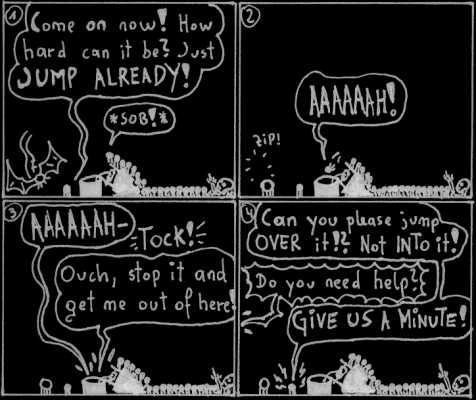 1
Come on now! How
hard can it be? Just
JUMP ALREADY!
*SOB!*
2
AAAAAAH!
ZiP!
3
AAAAAAH-
TOCK!
Ouch, stop it and
get me out of here!
4
Can you please jump
OVER it!? Not INTO it!
Do you need help?
GIVE US A MINUTE!